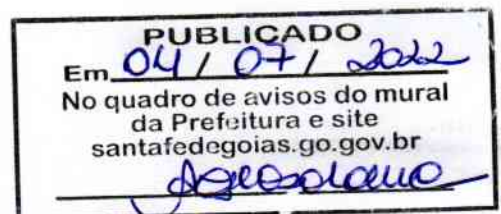 PUBLICADO
Em 04 / 07 / 2022
No quadro de avisos do mural
da Prefeitura e site
santafedegoias.go.gov.br